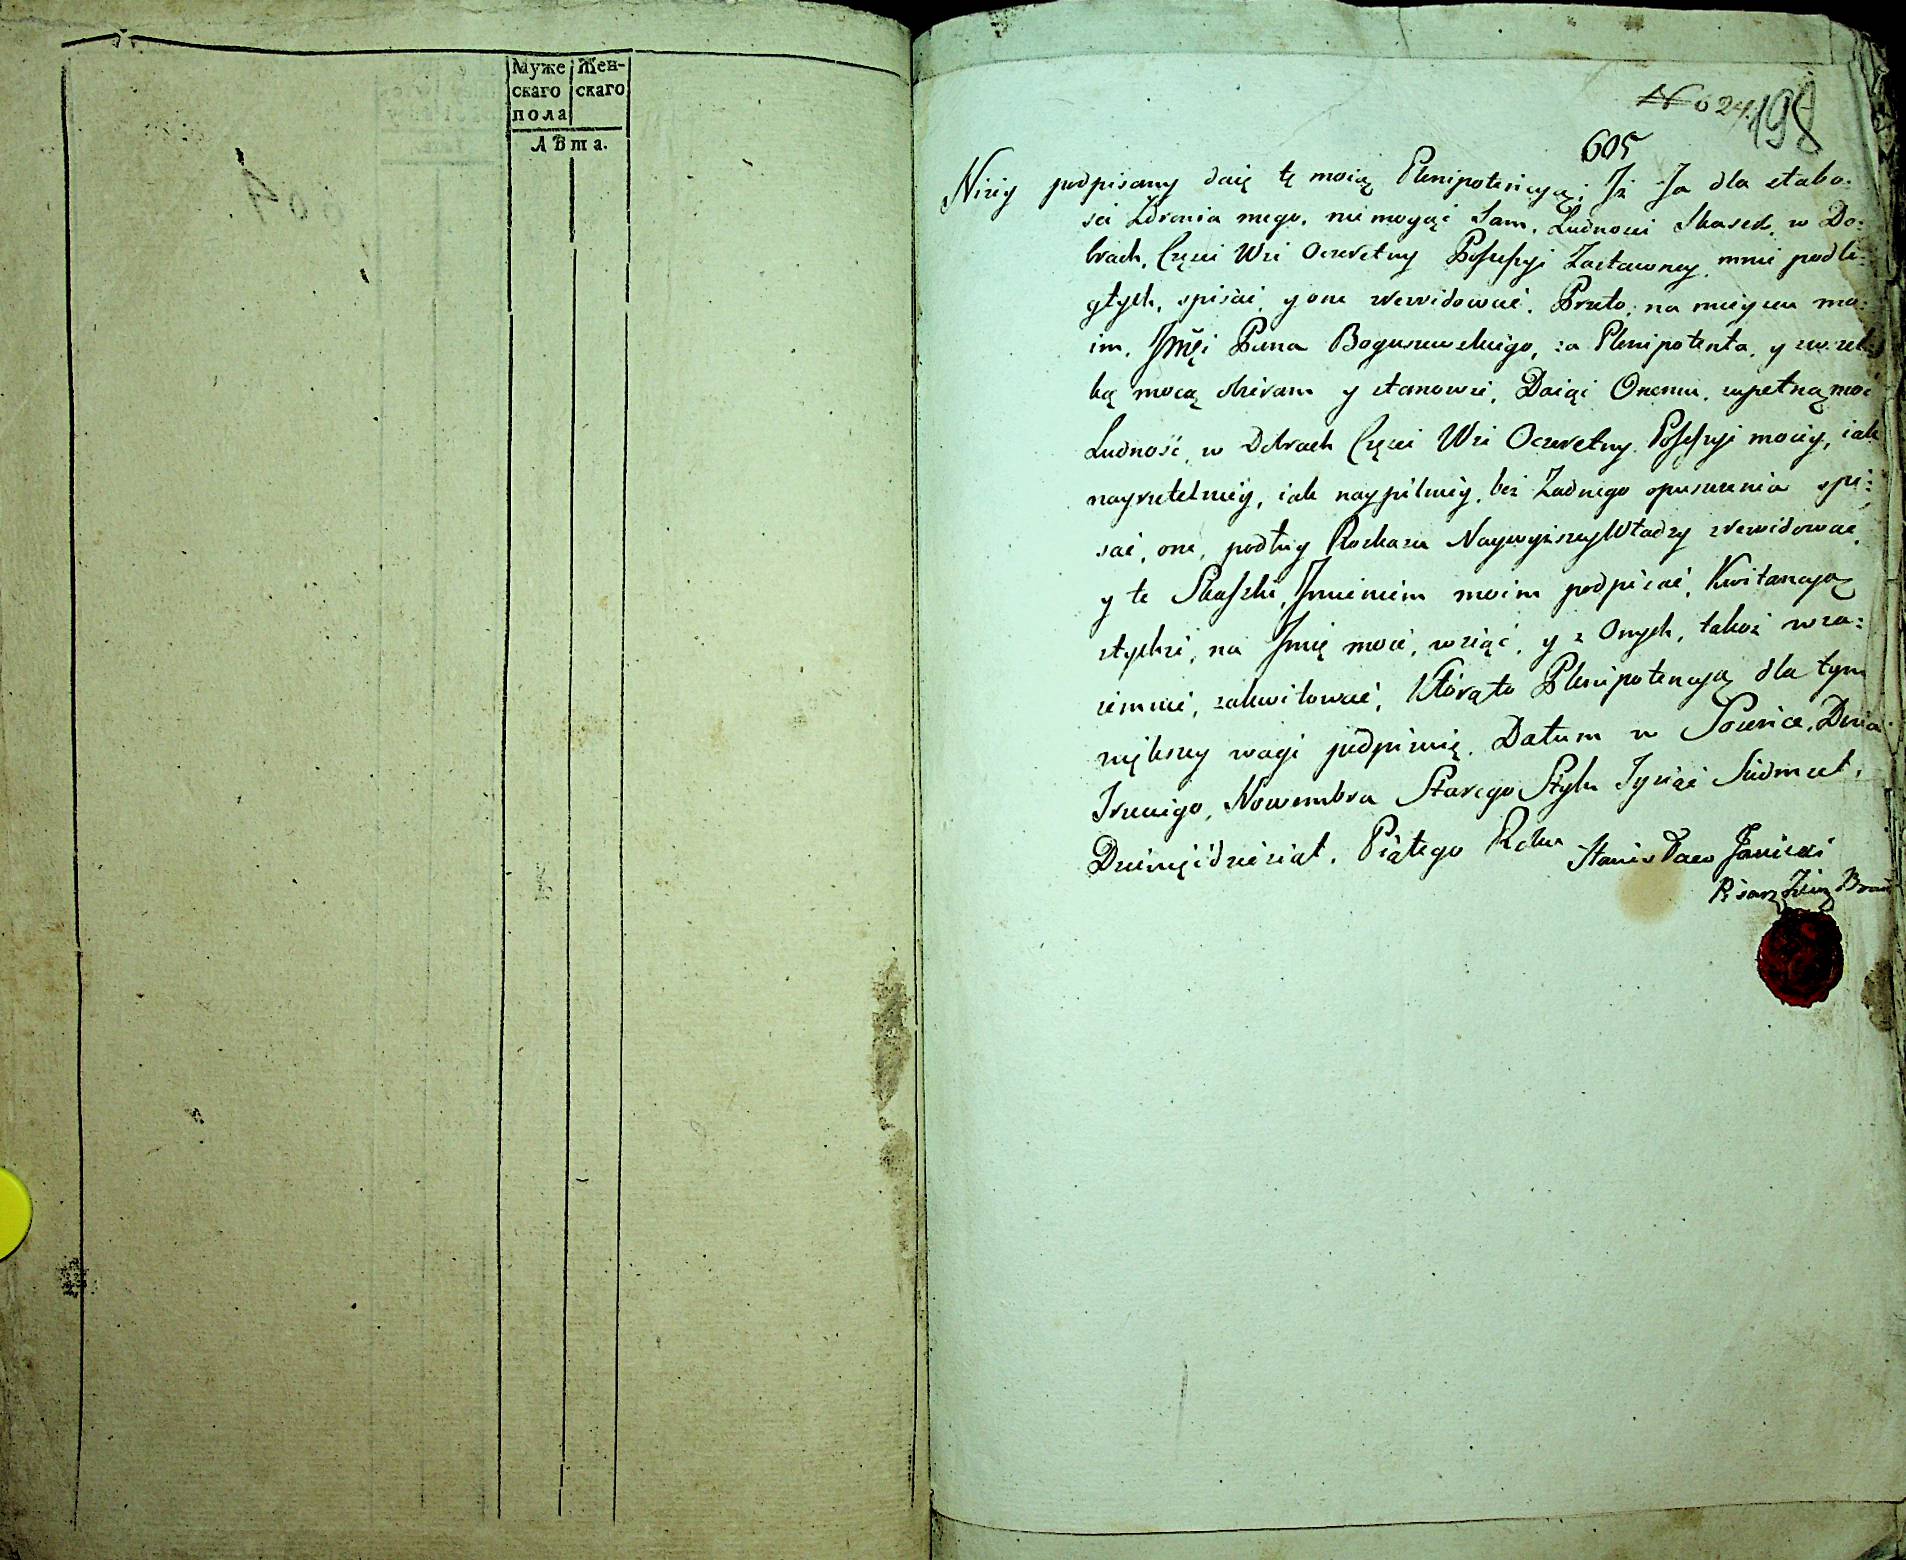 Муже Жен-
скаго скаго
пола
лѣта.
No 24. 198
605
Niżey podpisany daię tę moią Plenipotencyą; Iż Ja dla słabo:
ści Zdrowia mego, nie mogąc Sam, Ludności Skasek, w Do:
brach, Części Wsi Oczeretny Possessyi Zastawney mnie podle:
głych, spisać, y one zrewidować. Przeto, na mieyscu mo:
im, Jmći Pana Boguszewskiego, za Plenipotenta, y wszel:
ką mocą obieram y stanowie, Daiąc Onemu, zupełną moc
Ludność, w Dobrach Części Wsi Oczeretny Possessyi moiey, iak
nayrzetelniey, iak naypilniey, bez Żadnego opuszczenia spi:
sać, one, podług Rozkazu Naywyższey Władzy zrewidować,
y te Skaszki, Jmieniem moim podpisać, Kwitancyą
ztychże, na Jmię moie, wziąć, y z Onych, takoż wza:
iemnie, zakwitować, Którąto Plenipotencyą dla tym
większey wagi podpisuię. Datum w Dnia
Trzeciego, Nowembra Starego Stylu Tysiąc Siedmset,
Dziewięćdziesiąt, Piątego Roku Stanisław Janicki
Pisarz Ziem